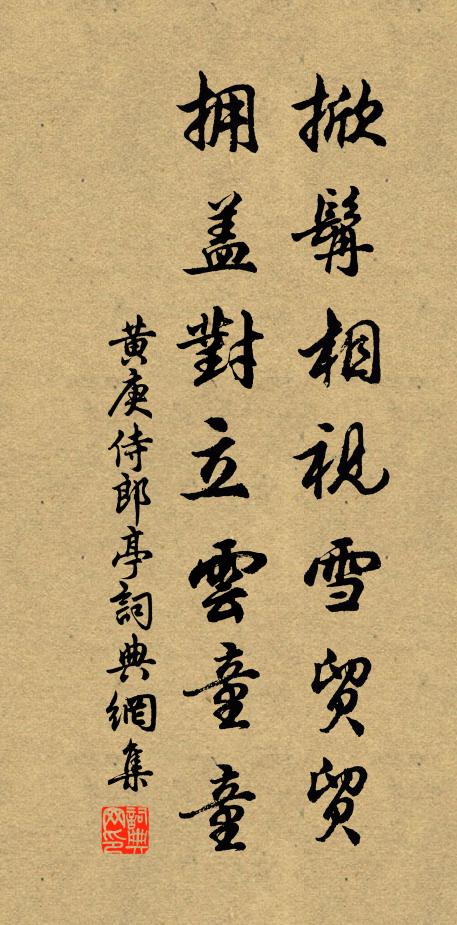 掀髯相視雪貿貿
拥盖對立雲童童
黄庚侍郎亭詞典網集